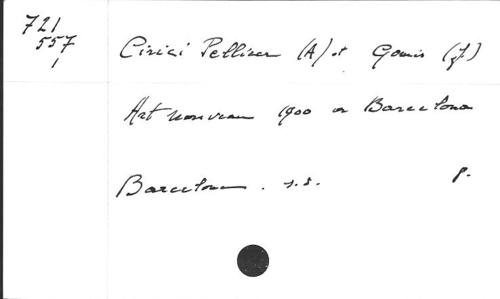 721
557
1
Cirici Pellicer (A) et Gomis (J)
Art nouveau 1900 a Barcelona
Barcelona. s.d. p.